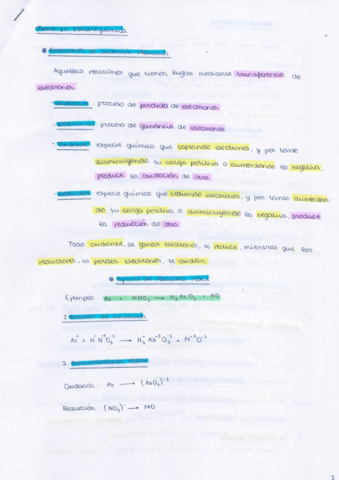 Aquellas reacciones que tienen lugar mediante transferencia de
electrones.
- Oxidación: proceso de perdida de electrones
- Reducción: proceso de ganancia de electrones
- Oxidante: especie química que captando electrones, y por tanto
disminuyendo su carga positiva o aumentando la negativa,
produce la oxidación de otra.
- Reductor: especie química que cediendo electrones, y por tanto aumentan-
do su carga positiva o disminuyendo la negativa, produce
la reducción de otra.
Todo oxidante, al ganar electrones, se reduce, mientras que los
reductores, al perder electrones, se oxidan.
Ajuste de reacciones redox
Ejemplo: As + HNO₃ → H₃AsO₄ + NO
1.
2.
Oxidación: As → (AsO₄)⁻³
Reducción: (NO₃)⁻ → NO
1